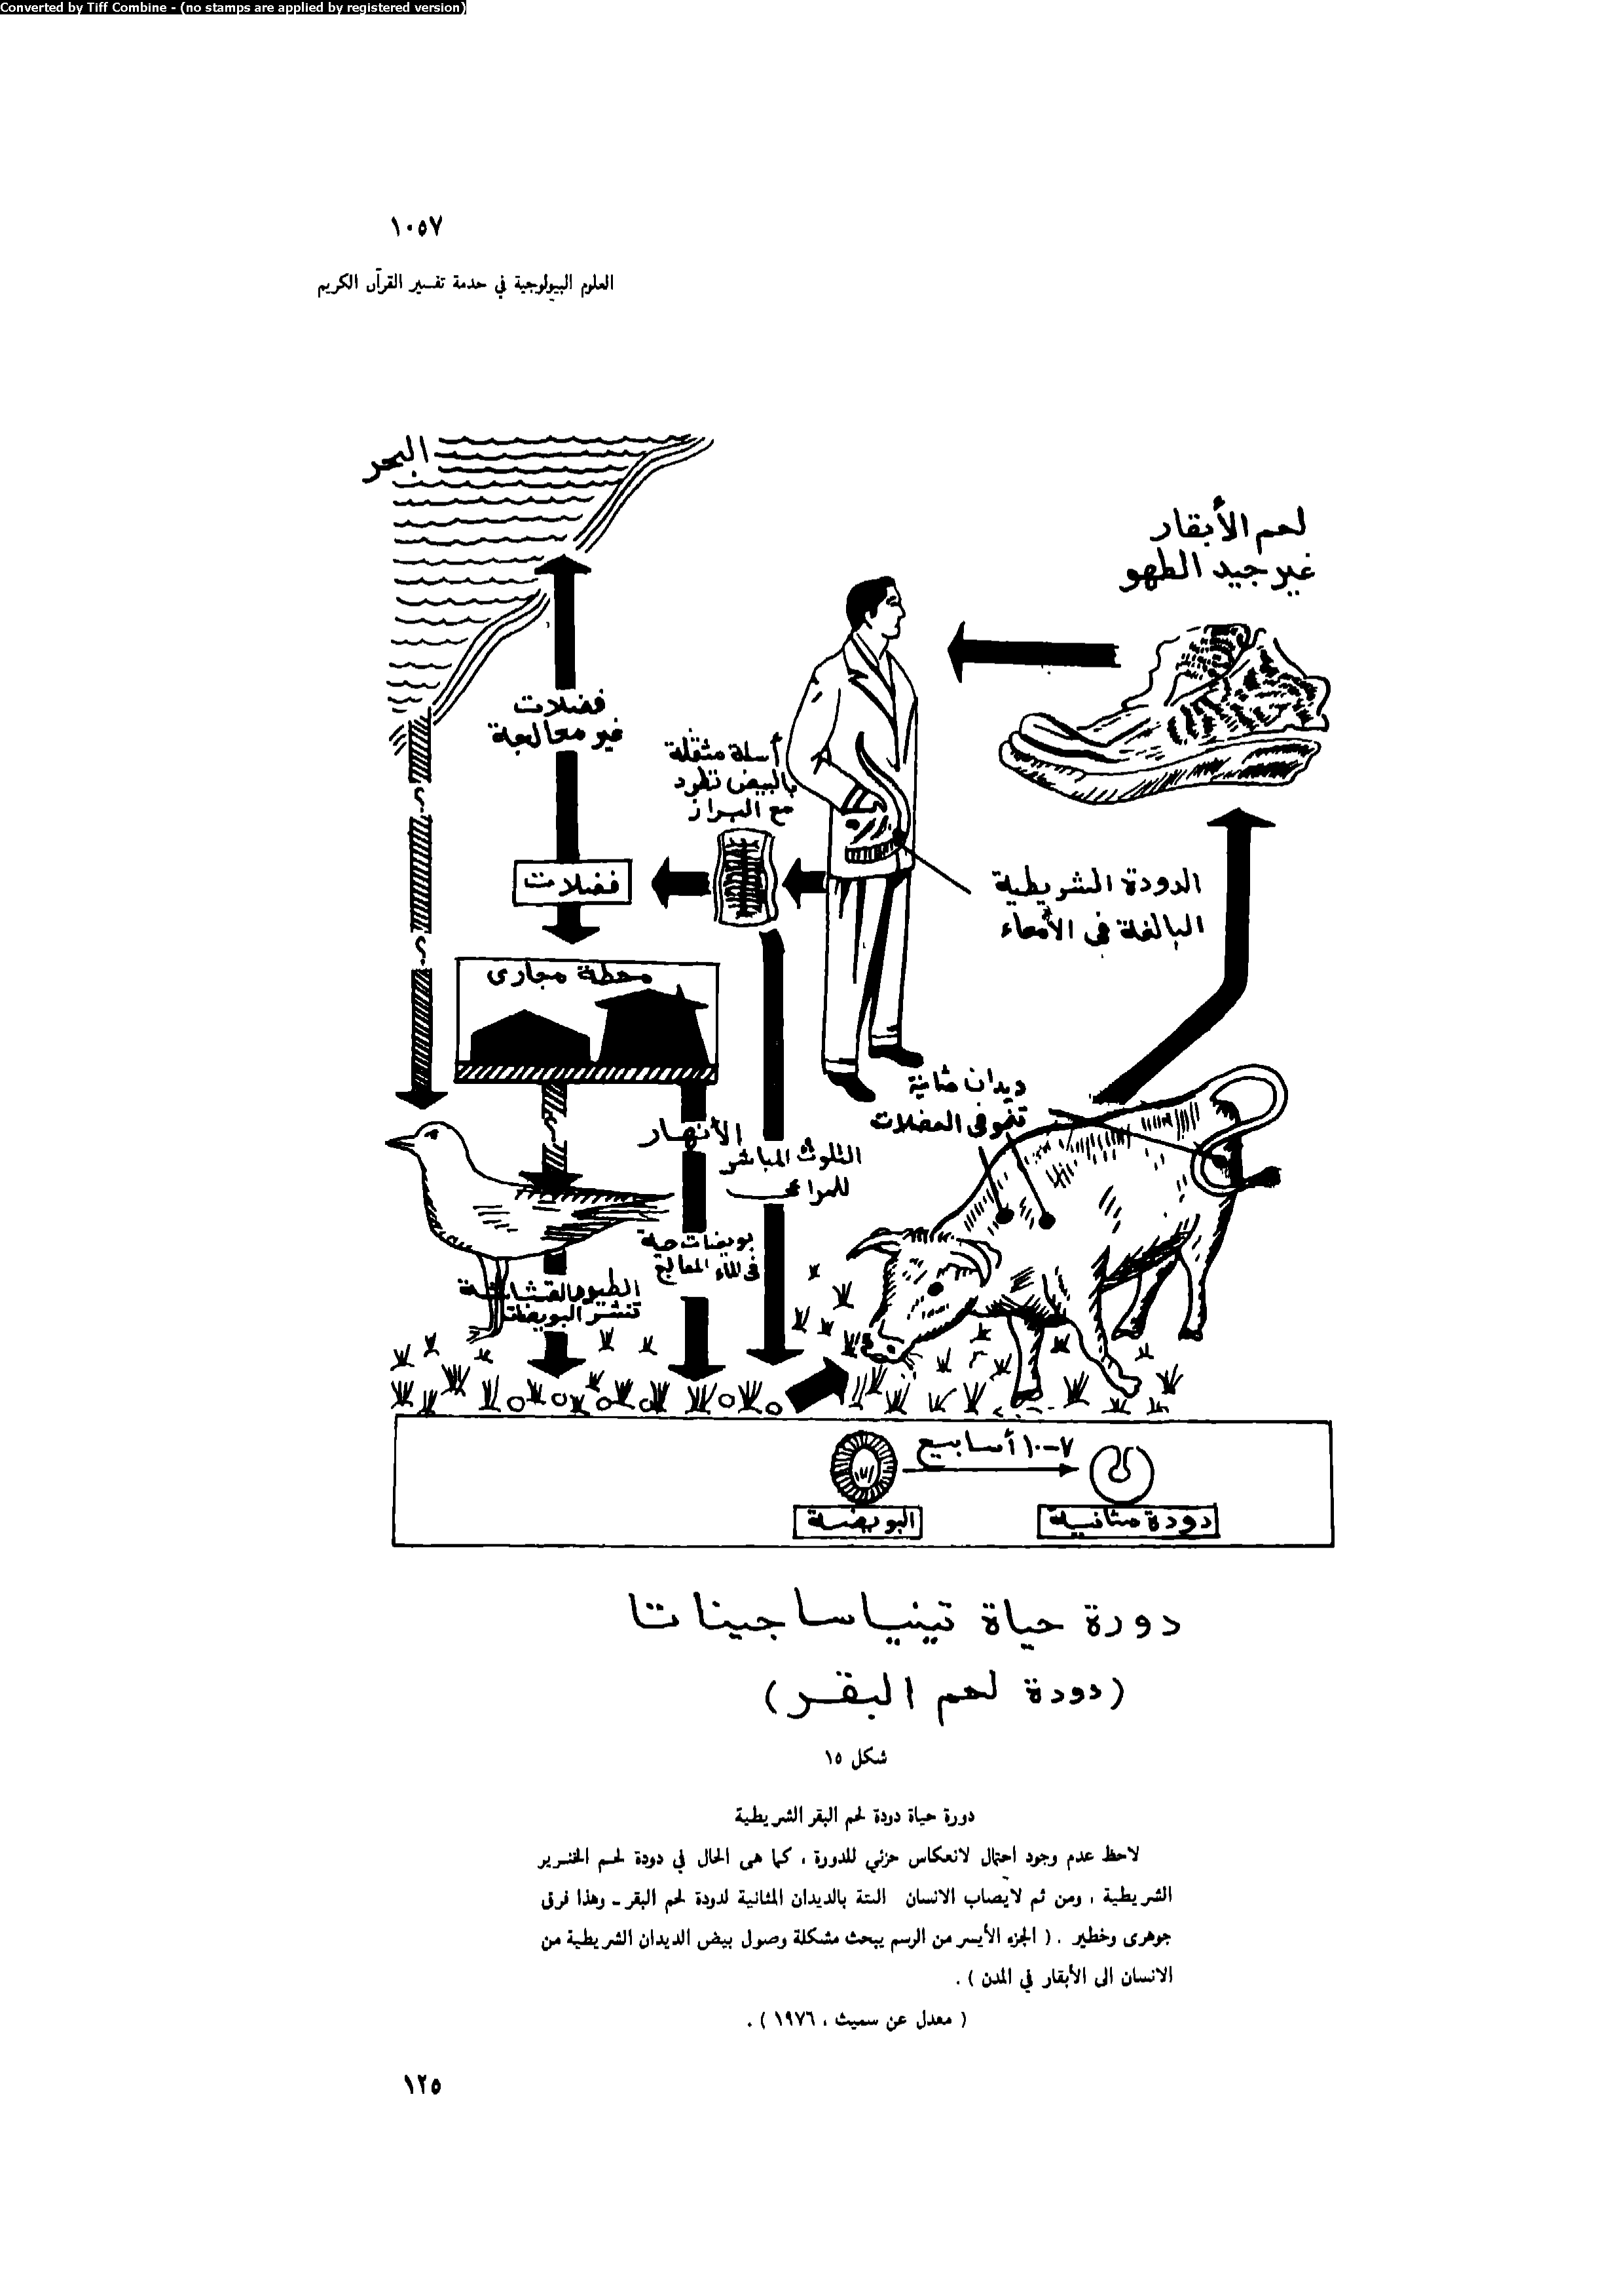 Converted by Tiff Combine - (no stamps are applied by registered version)
١٠٥٧
العلوم البيولوجية في خدمة تفسير القرآن الكريم
البحر
لحم الأبقار
غير جيد الطهو
فضلات
غير معالجة
أسلة مثقلة
بالبيض تطرد
مع البراز
فضلات
الدودة الشريطية
البالغة في الأمعاء
محطة مجارى
ديدان مثانية
تنمو في العضلات
الأنهار
التلوث المباشر
للمراعى
بويضات حية
في الماء المعالج
الطيور القشاشة
تنشر البويضات
٧-١٠ أسابيع
البويضة
دودة مثانية
دورة حياة تينيا ساجيناتا
(دودة لحم البقر)
شكل ١٥
دورة حياة دودة لحم البقر الشريطية
لاحظ عدم وجود احتمال لانعكاس جزئي للدورة ، كما هى الحال في دودة لحم الخنزير
الشريطية ، ومن ثم لا يصاب الانسان البتة بالديدان المثانية لدودة لحم البقر ـ وهذا فرق
جوهرى وخطير . ( الجزء الأيسر من الرسم يبحث مشكلة وصول بيض الديدان الشريطية من
الانسان الى الأبقار في المدن ) .
( معدل عن سميث ، ١٩٧٦ ) .
١٢٥